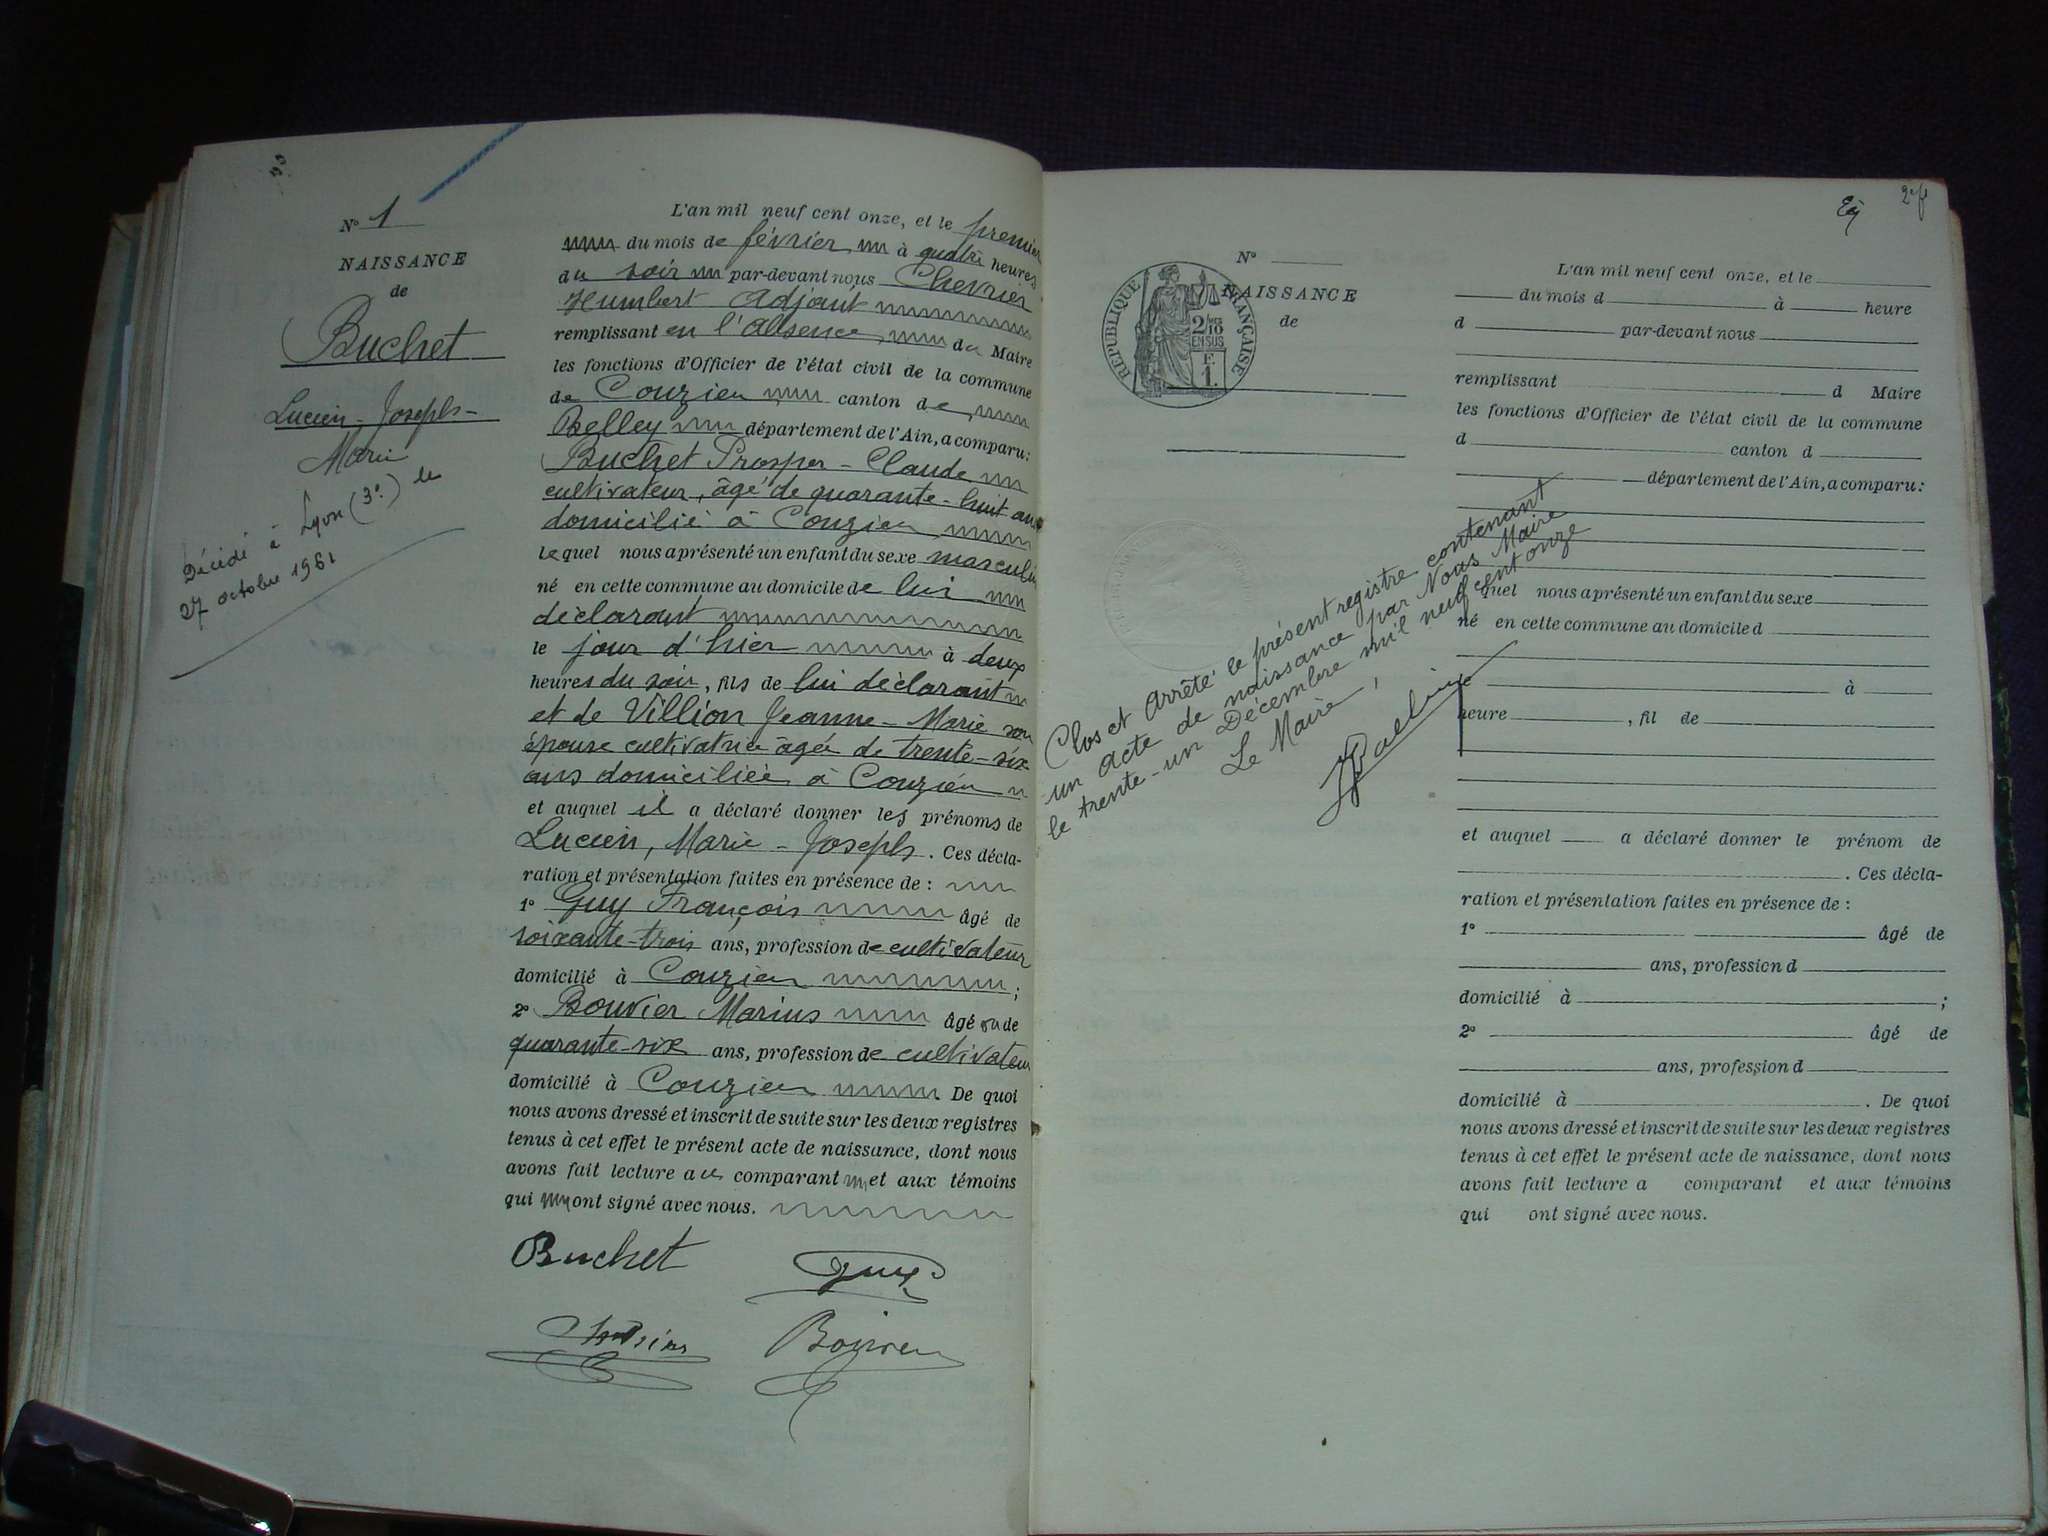 N° 1
NAISSANCE
de
Buchet
Lucien-Joseph-
Marie
Décédé à Lyon (3e) le
27 octobre 1961
L'an mil neuf cent onze, et le premier
du mois de février à quatre heures
du soir par-devant nous Chevrier
Humbert Adjoint
remplissant en l'absence du Maire
les fonctions d'Officier de l'état civil de la commune
de Couzieu canton de
Belley département de l'Ain, a comparu:
Buchet Prosper-Claude
cultivateur, âgé de quarante-huit ans
domicilié à Couzieu
lequel nous a présenté un enfant du sexe masculin
né en cette commune au domicile de lui
déclarant
le jour d'hier à deux
heures du soir, fils de lui déclarant
et de Villion Jeanne-Marie son
épouse cultivatrice âgée de trente-six
ans domiciliée à Couzieu
et auquel il a déclaré donner les prénoms de
Lucien, Marie-Joseph. Ces décla-
ration et présentation faites en présence de :
1° Guy François âgé de
soixante-trois ans, profession de cultivateur
domicilié à Couzieu ;
2° Bouvier Marius âgé de
quarante-six ans, profession de cultivateur
domicilié à Couzieu De quoi
nous avons dressé et inscrit de suite sur les deux registres
tenus à cet effet le présent acte de naissance, dont nous
avons fait lecture au comparant et aux témoins
qui ont signé avec nous.
Buchet Guy
Bouvier
2e f
N°
NAISSANCE
de
REPUBLIQUE FRANÇAISE
2/10
EN SUS
F.
1.
Clos et Arrêté le présent registre contenant
un acte de naissance par Nous Maire
le trente-un Décembre mil neuf cent onze
Le Maire,
L'an mil neuf cent onze, et le
du mois d à heure
d par-devant nous
remplissant d Maire
les fonctions d'Officier de l'état civil de la commune
d canton d
département de l'Ain, a comparu:
quel nous a présenté un enfant du sexe
né en cette commune au domicile d
le à
heure , fil de
et auquel a déclaré donner le prénom de
. Ces décla-
ration et présentation faites en présence de :
1° âgé de
ans, profession d
domicilié à ;
2° âgé de
ans, profession d
domicilié à . De quoi
nous avons dressé et inscrit de suite sur les deux registres
tenus à cet effet le présent acte de naissance, dont nous
avons fait lecture a comparant et aux témoins
qui ont signé avec nous.